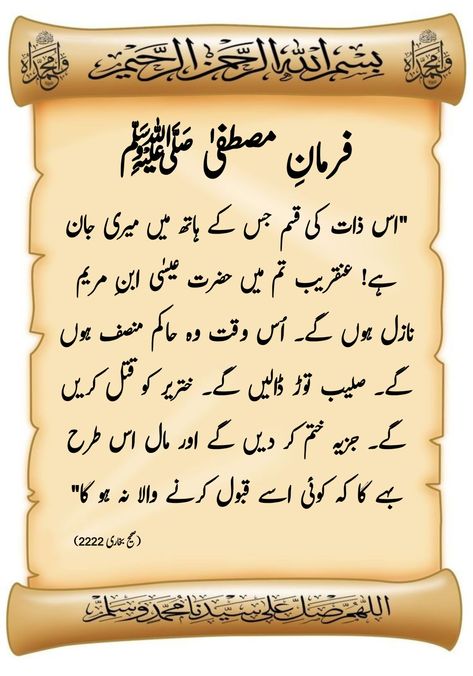 بسم الله الرحمن الرحيم
فرمانِ مصطفیٰ ﷺ
"اس ذات کی قسم جس کے ہاتھ میں میری جان
ہے! عنقریب تم میں حضرت عیسٰی ابنِ مریم
نازل ہوں گے۔ اُس وقت وہ حاکم منصف ہوں
گے۔ صلیب توڑ ڈالیں گے۔ خنزیر کو قتل کریں
گے۔ جزیہ ختم کر دیں گے اور مال اس طرح
بہے گا کہ کوئی اسے قبول کرنے والا نہ ہو گا"
(صحیح بخاری 2222)
اللهم صل على سيدنا محمد وسلم